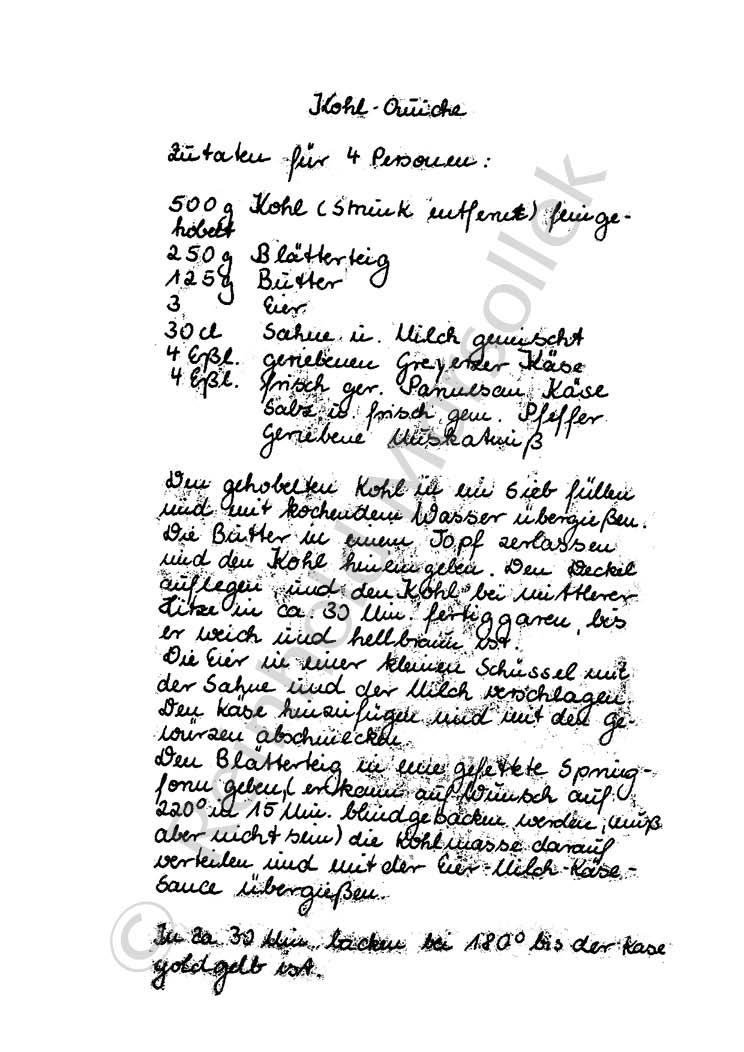 Kohl-Quiche
Zutaten für 4 Personen:
500 g Kohl (Strunk entfernt) feinge-
hobelt
250 g Blätterteig
125 g Butter
3 Eier
30 cl Sahne u. Milch gemischt
4 Eßl. geriebenen Greyerzer Käse
4 Eßl. frisch ger. Parmesan Käse
Salz u. frisch gem. Pfeffer
Geriebene Muskatnuß
Den gehobelten Kohl in ein Sieb füllen
und mit kochendem Wasser übergießen.
Die Butter in einem Topf zerlassen
und den Kohl hineingeben. Den Deckel
auflegen und den Kohl bei mittlerer
Hitze in ca. 30 Min. fertiggaren, bis
er weich und hellbraun ist.
Die Eier in einer kleinen Schüssel mit
der Sahne und der Milch verschlagen.
Den Käse hinzufügen und mit den Ge-
würzen abschmecken.
Den Blätterteig in eine gefettete Spring-
form geben, (er kann auf Wunsch auf
220° in 15 Min. blindgebacken werden, muß
aber nicht sein) die Kohlmasse darauf
verteilen und mit der Eier-Milch-Käse-
Sauce übergießen.
In ca 30 Min. backen bei 180° bis der Käse
goldgelb ist.
© Reinhold Mursollek